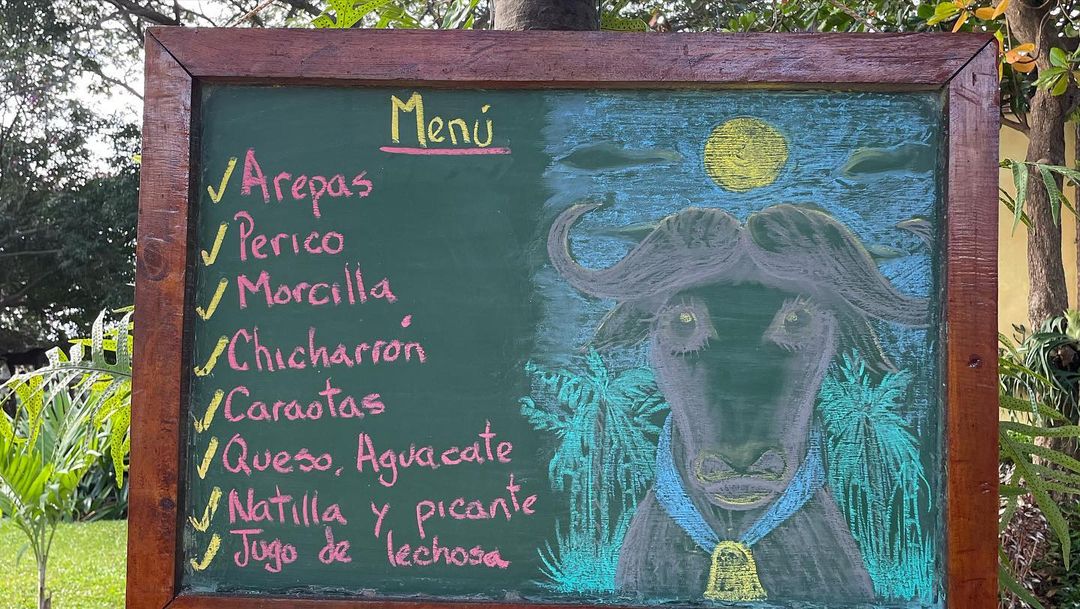 Menú
Arepas
Perico
Morcilla
Chicharrón
Caraotas
Queso, Aguacate
Natilla y picante
Jugo de lechosa